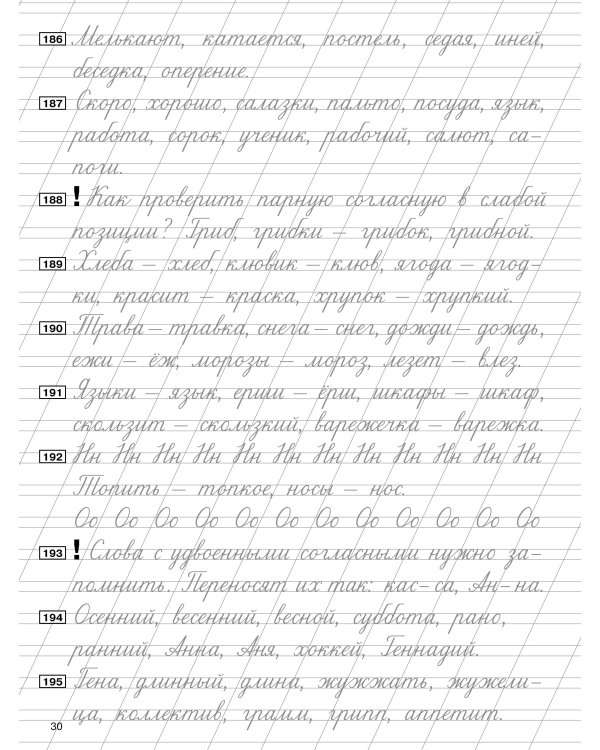 186 Мелькают, катается, постель, седая, иней,
беседка, оперение.
187 Скоро, хорошо, салазки, пальто, посуда, язык,
работа, сорок, ученик, рабочий, салют, са-
поги.
188 ! Как проверить парную согласную в слабой
позиции? Гриб, грибки – грибок, грибной.
189 Хлеба – хлеб, клювик – клюв, ягода – ягод-
ки, красит – краска, хрупок – хрупкий.
190 Трава – травка, снега – снег, дожди – дождь,
ежи – ёж, морозы – мороз, лезет – влез.
191 Языки – язык, ерши – ёрш, шкафы – шкаф,
скользит – скользкий, варежечка – варежка.
192 Нн Нн Нн Нн Нн Нн Нн Нн Нн Нн Нн Нн
Топить – топкое, носы – нос.
Оо Оо Оо Оо Оо Оо Оо Оо Оо Оо Оо Оо
193 ! Слова с удвоенными согласными нужно за-
помнить. Переносят их так: кас-са, Ан-на.
194 Осенний, весенний, весной, суббота, рано,
ранний, Анна, Аня, хоккей, Геннадий.
195 Гена, длинный, длина, жужжать, жужели-
ца, коллектив, грамм, грипп, аппетит.
30